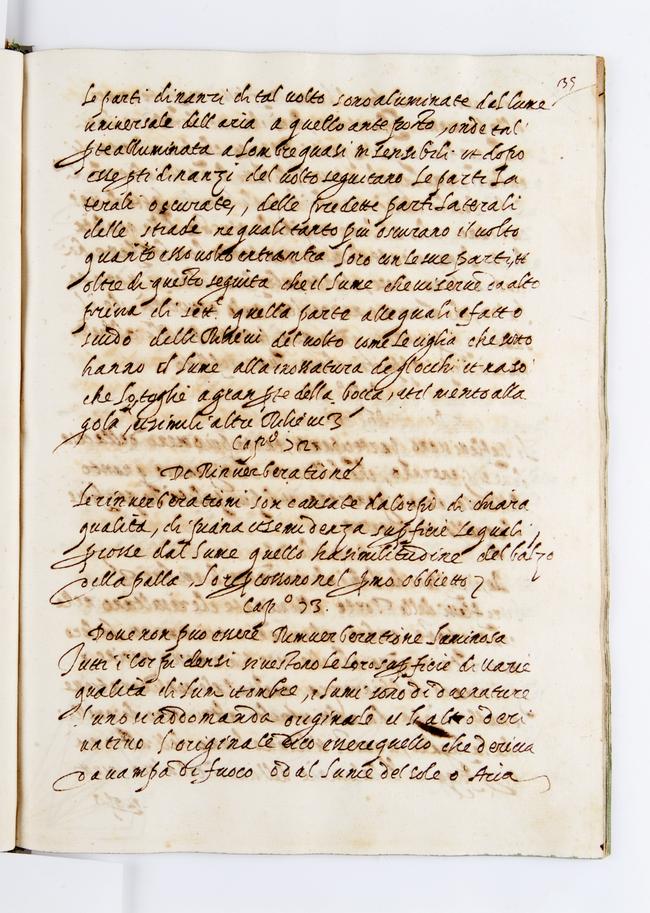 135
le parti dinanzi di tal uolto sono aluminate dal lume
uniuersale dell aria a quello ante posto, onde tal
pte alluminata a l'ombre quasi insensibili et dopo
esse pti dinanzi del uolto seguitano le parti la
terali oscurate, delle predette parti laterali
delle strade ne quali tanto piu oscurano il uolto
quanto esso uolto entra infra loro con le sue parti, et
oltre di questo seguita che il lume che ui scende da alto
priua di se quella parte alle quali e fatto
scudo delli Rilieui del uolto come le ciglia che sotto
hanno il lume alla incassatura de gl occhi et naso
che lo toglie a gran pte della bocca, et il mento alla
gola, et simili altri Rilieui
Cap.º 72
De Rinuerberatione
Le rinuerberationi son causate da corpi di chiara
qualità, di piana et semidenza supficie le quali
pcosse dal lume quello ha similitudine del balzo
della palla, lo repcotono nel pmo obbietto
Cap.º 73.
Doue non puo essere Rinuerberatione luminosa
Tutti i corpi densi si uestono le loro supficie di uarie
qualità di lumi et ombre, i lumi sono di due nature
l'uno si addomanda originale et l'altro deri
uatiuo l'originale dico essere quello che deriua
da uampa di fuoco o dal lume del sole o Aria